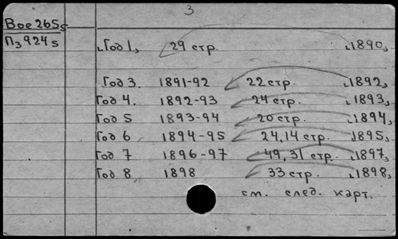 3
Вое 265₅
П₃ 924₅
„Год 1, 29 стр. „1890„
Год 3. 1891-92 22 стр. „1892„
Год 4. 1892-93 24 стр. „1893„
Год 5 1893-94 20 стр. „1894„
Год 6 1894-95 24,14 стр. „1895„
Год 7 1896-97 49,31 стр. „1897„
Год 8. 1898 33 стр. „1898„
см. след. карт.